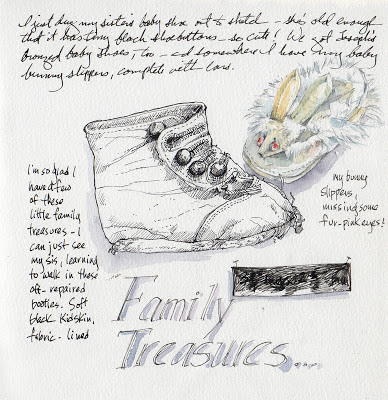 I just dug my sister's baby shoe out to sketch - she's old enough
that it has tiny black shoebuttons - so cute! We have Joseph's
bronzed baby shoes, too - and somewhere I have my baby
bunny slippers, complete with ears.
I'm so glad I
have a few
of these
little family
treasures - I
can just see
my sis, learning
to walk in these
oft-repaired
booties. Soft
black kidskin,
fabric-lined
my bunny
slippers,
missing some
fur - pink eyes!
Family
Treasures....